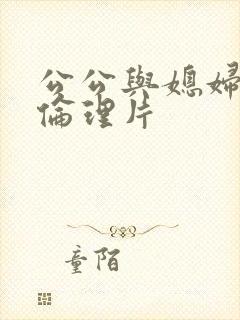 公公與媳婦
倫理片
童陌